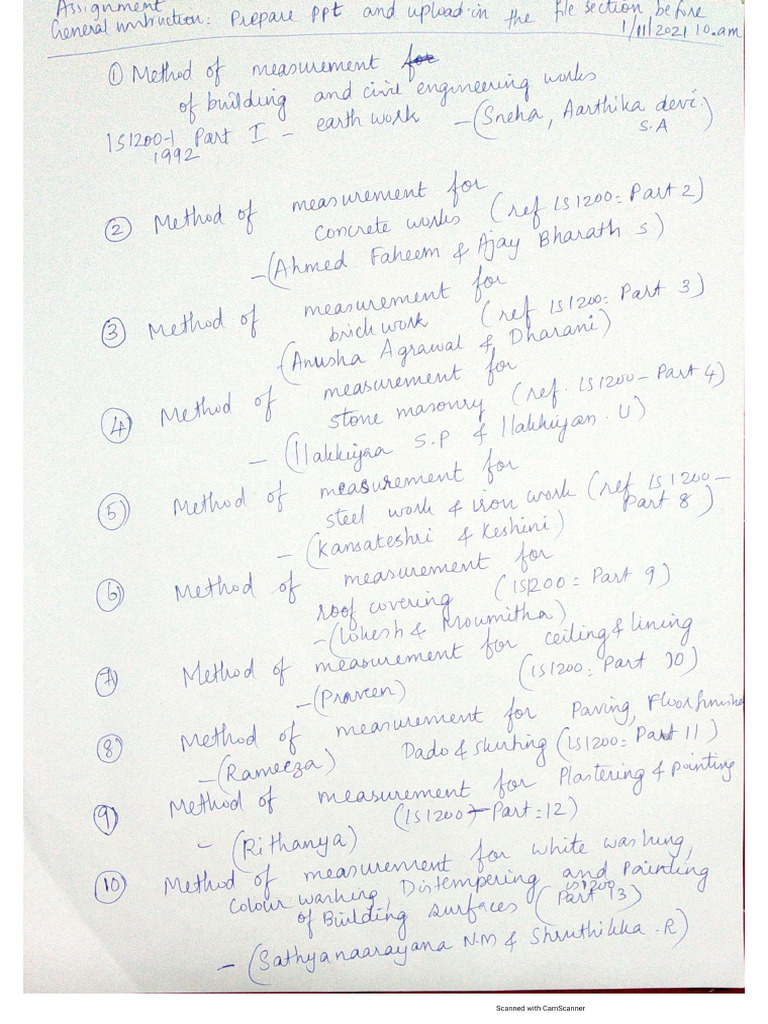 Assignment
General instruction: Prepare ppt and upload in the file section before
1/11/2021 10.am
① Method of measurement for
of building and civil engineering works
IS1200-1 Part I - earth work - (Sneha, Aarthika devi.
1992 S.A)
② Method of measurement for
concrete works (ref IS1200: Part 2)
- (Ahmed Faheem & Ajay Bharath S)
③ Method of measurement for
brick work (ref IS1200: Part 3)
- (Anusha Agrawal & Dharani)
④ Method of measurement for
stone masonry (ref. IS1200 - Part 4)
- (Ilakkiyaa S.P & Ilakkiyan. U)
⑤ Method of measurement for
steel work & iron work (ref IS1200 -
Part 8)
- (Kansateshri & Keshini)
⑥ Method of measurement for
roof covering (IS1200: Part 9)
- (Lokesh & Moumitha)
⑦ Method of measurement for ceiling & lining
- (Praveen) (IS1200: Part 10)
⑧ Method of measurement for Paving, Floor finishes
Dado & skirting (IS1200: Part 11)
- (Rameeza)
⑨ Method of measurement for Plastering & pointing
(IS1200 - Part: 12)
- (Rithanya)
⑩ Method of measurement for white washing,
Colour washing, Distempering and Painting
of Building surfaces (IS1200 Part 13)
- (Sathyanaarayana N.M & Shruthikka .R)
Scanned with CamScanner